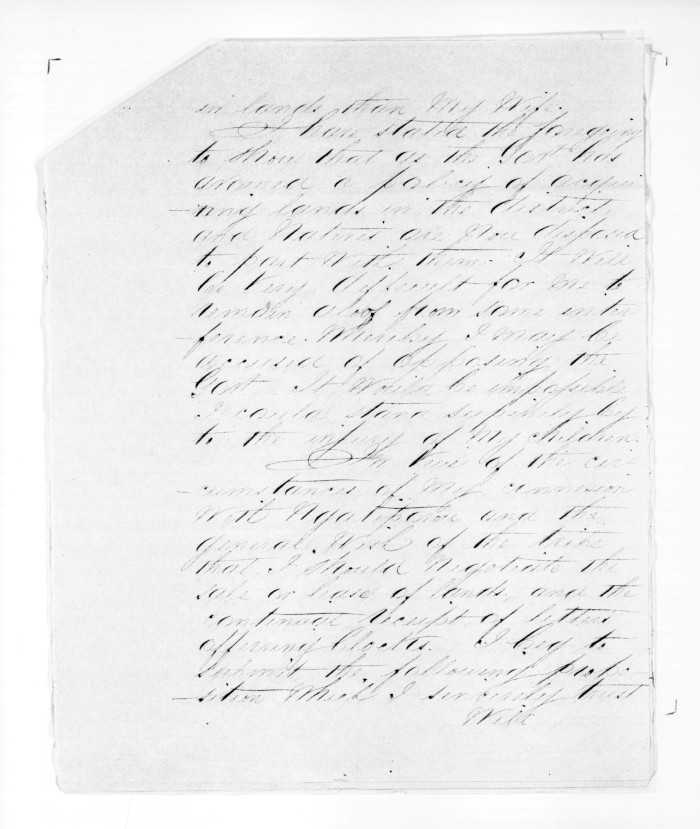 in lands than My Wife.
I have stated the foregoing
to show that as the Govt has
a policy of acqui
-ring lands in the district,
and Natives are Now disposed
to part With them. It Will
be Very difficult for Me to
remain aloof from some inter
ference. Whereby I may be
accused of opposing the
Govt. It Would be impossible
I could stand supinely by
to the injury of My children.
In View of the cir
-cumstances, of My connexion
With and the
general Wish of the tribe
that I should Negotiate the
sale or lease of lands, and the
continuous receipt of letters
offering blocks. I beg to
submit the following propo
-sition Which I sincerely trust
Will